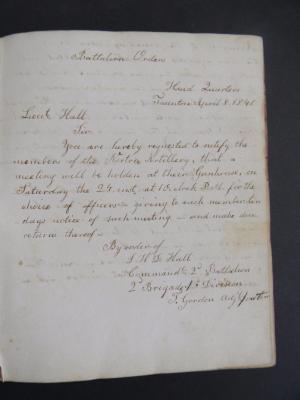 Battalion Order
Head Quarters
Taunton April 8. 1841
Lieut. Hall.
Sir
You are hereby requested to notify the
members of the Norton Artillery, that a
meeting will be holden at their Gunhouse, on
Saturday the 24 inst, at o'clock P.M. for the
choice of officers - giving to each member ten
days notice of such meeting - and make due
return thereof -
By order of
Hall
Command 2d Battalion
2d Brigade Division
T. Gordon Adj